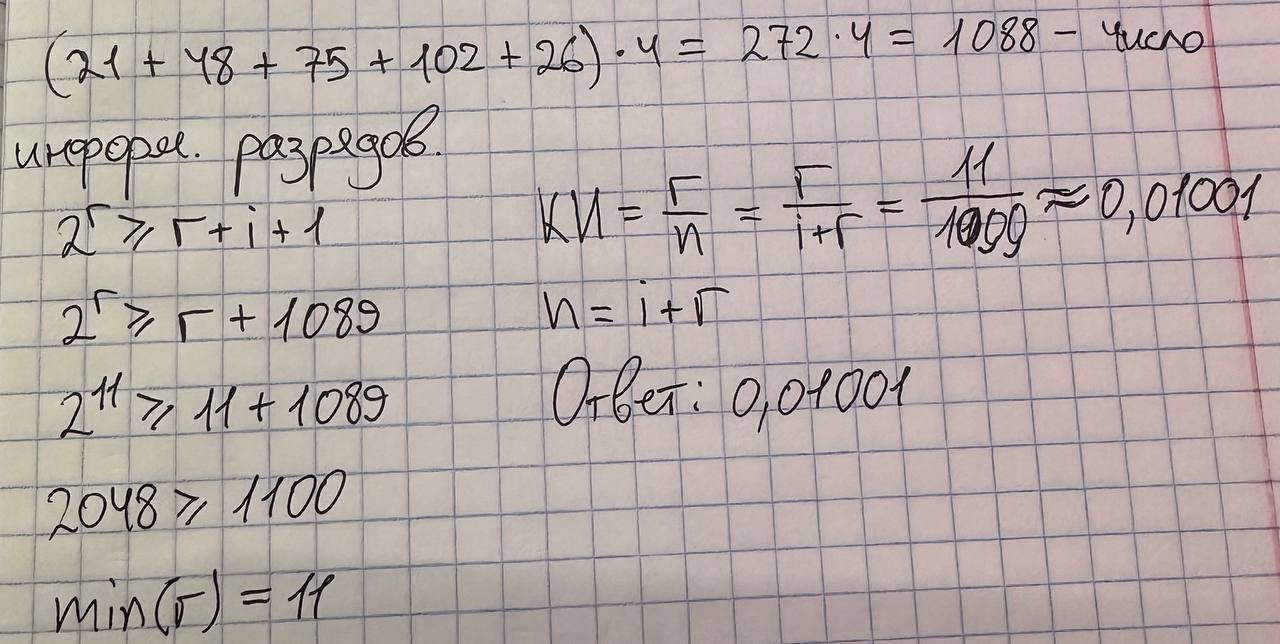 (21 + 48 + 75 + 102 + 26) · 4 = 272 · 4 = 1088 – число
информ. разрядов.
2^r ≥ r + i + 1
2^r ≥ r + 1089
2^11 ≥ 11 + 1089
2048 ≥ 1100
min(r) = 11
КИ = r/n = r/(i+r) = 11/1099 ≈ 0,01001
n = i + r
Ответ: 0,01001